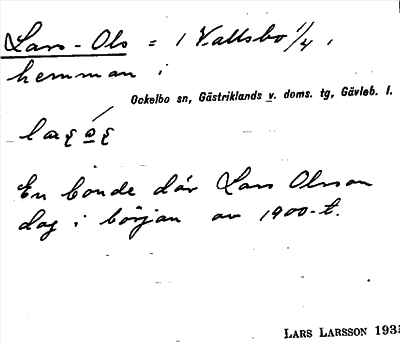 Lars-Ols = i Vallsbo 1/4,
hemman i
Ockelbo sn, Gästriklands v. doms. tg, Gävleb. l.
En bonde där Lars Olsson
dog i början av 1900-t.
LARS LARSSON 1935